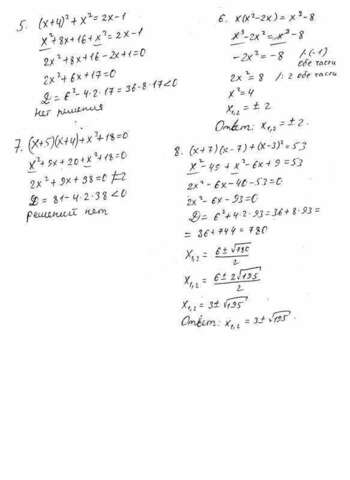 5. (x+4)² + x² = 2x-1
x²+8x+16+x²=2x-1
2x²+8x+16-2x+1=0
2x²+6x+17=0
D = 6²-4·2·17=36-8·17<0
Нет решения
6. x(x²-2x) = x³-8
x³-2x² = x³-8
-2x² = -8 /·(-1) обе части
2x² = 8 /: 2 обе части
x²=4
x₁,₂ = ± 2
Ответ: x₁,₂ = ± 2.
7. (x+5)(x+4)+x²+18=0
x²+9x+20+x²+18=0
2x²+9x+38=0
D = 81-4·2·38<0
решений нет
8. (x+7)(x-7)+(x-3)²=53
x²-49+x²-6x+9=53
2x²-6x-40-53=0
2x²-6x-93=0
D = 6²+4·2·93=36+8·93=
= 36+744 = 780
x₁,₂ = 6±√780 / 2
x₁,₂ = 6±2√195 / 2
x₁,₂ = 3±√195
Ответ: x₁,₂ = 3±√195.